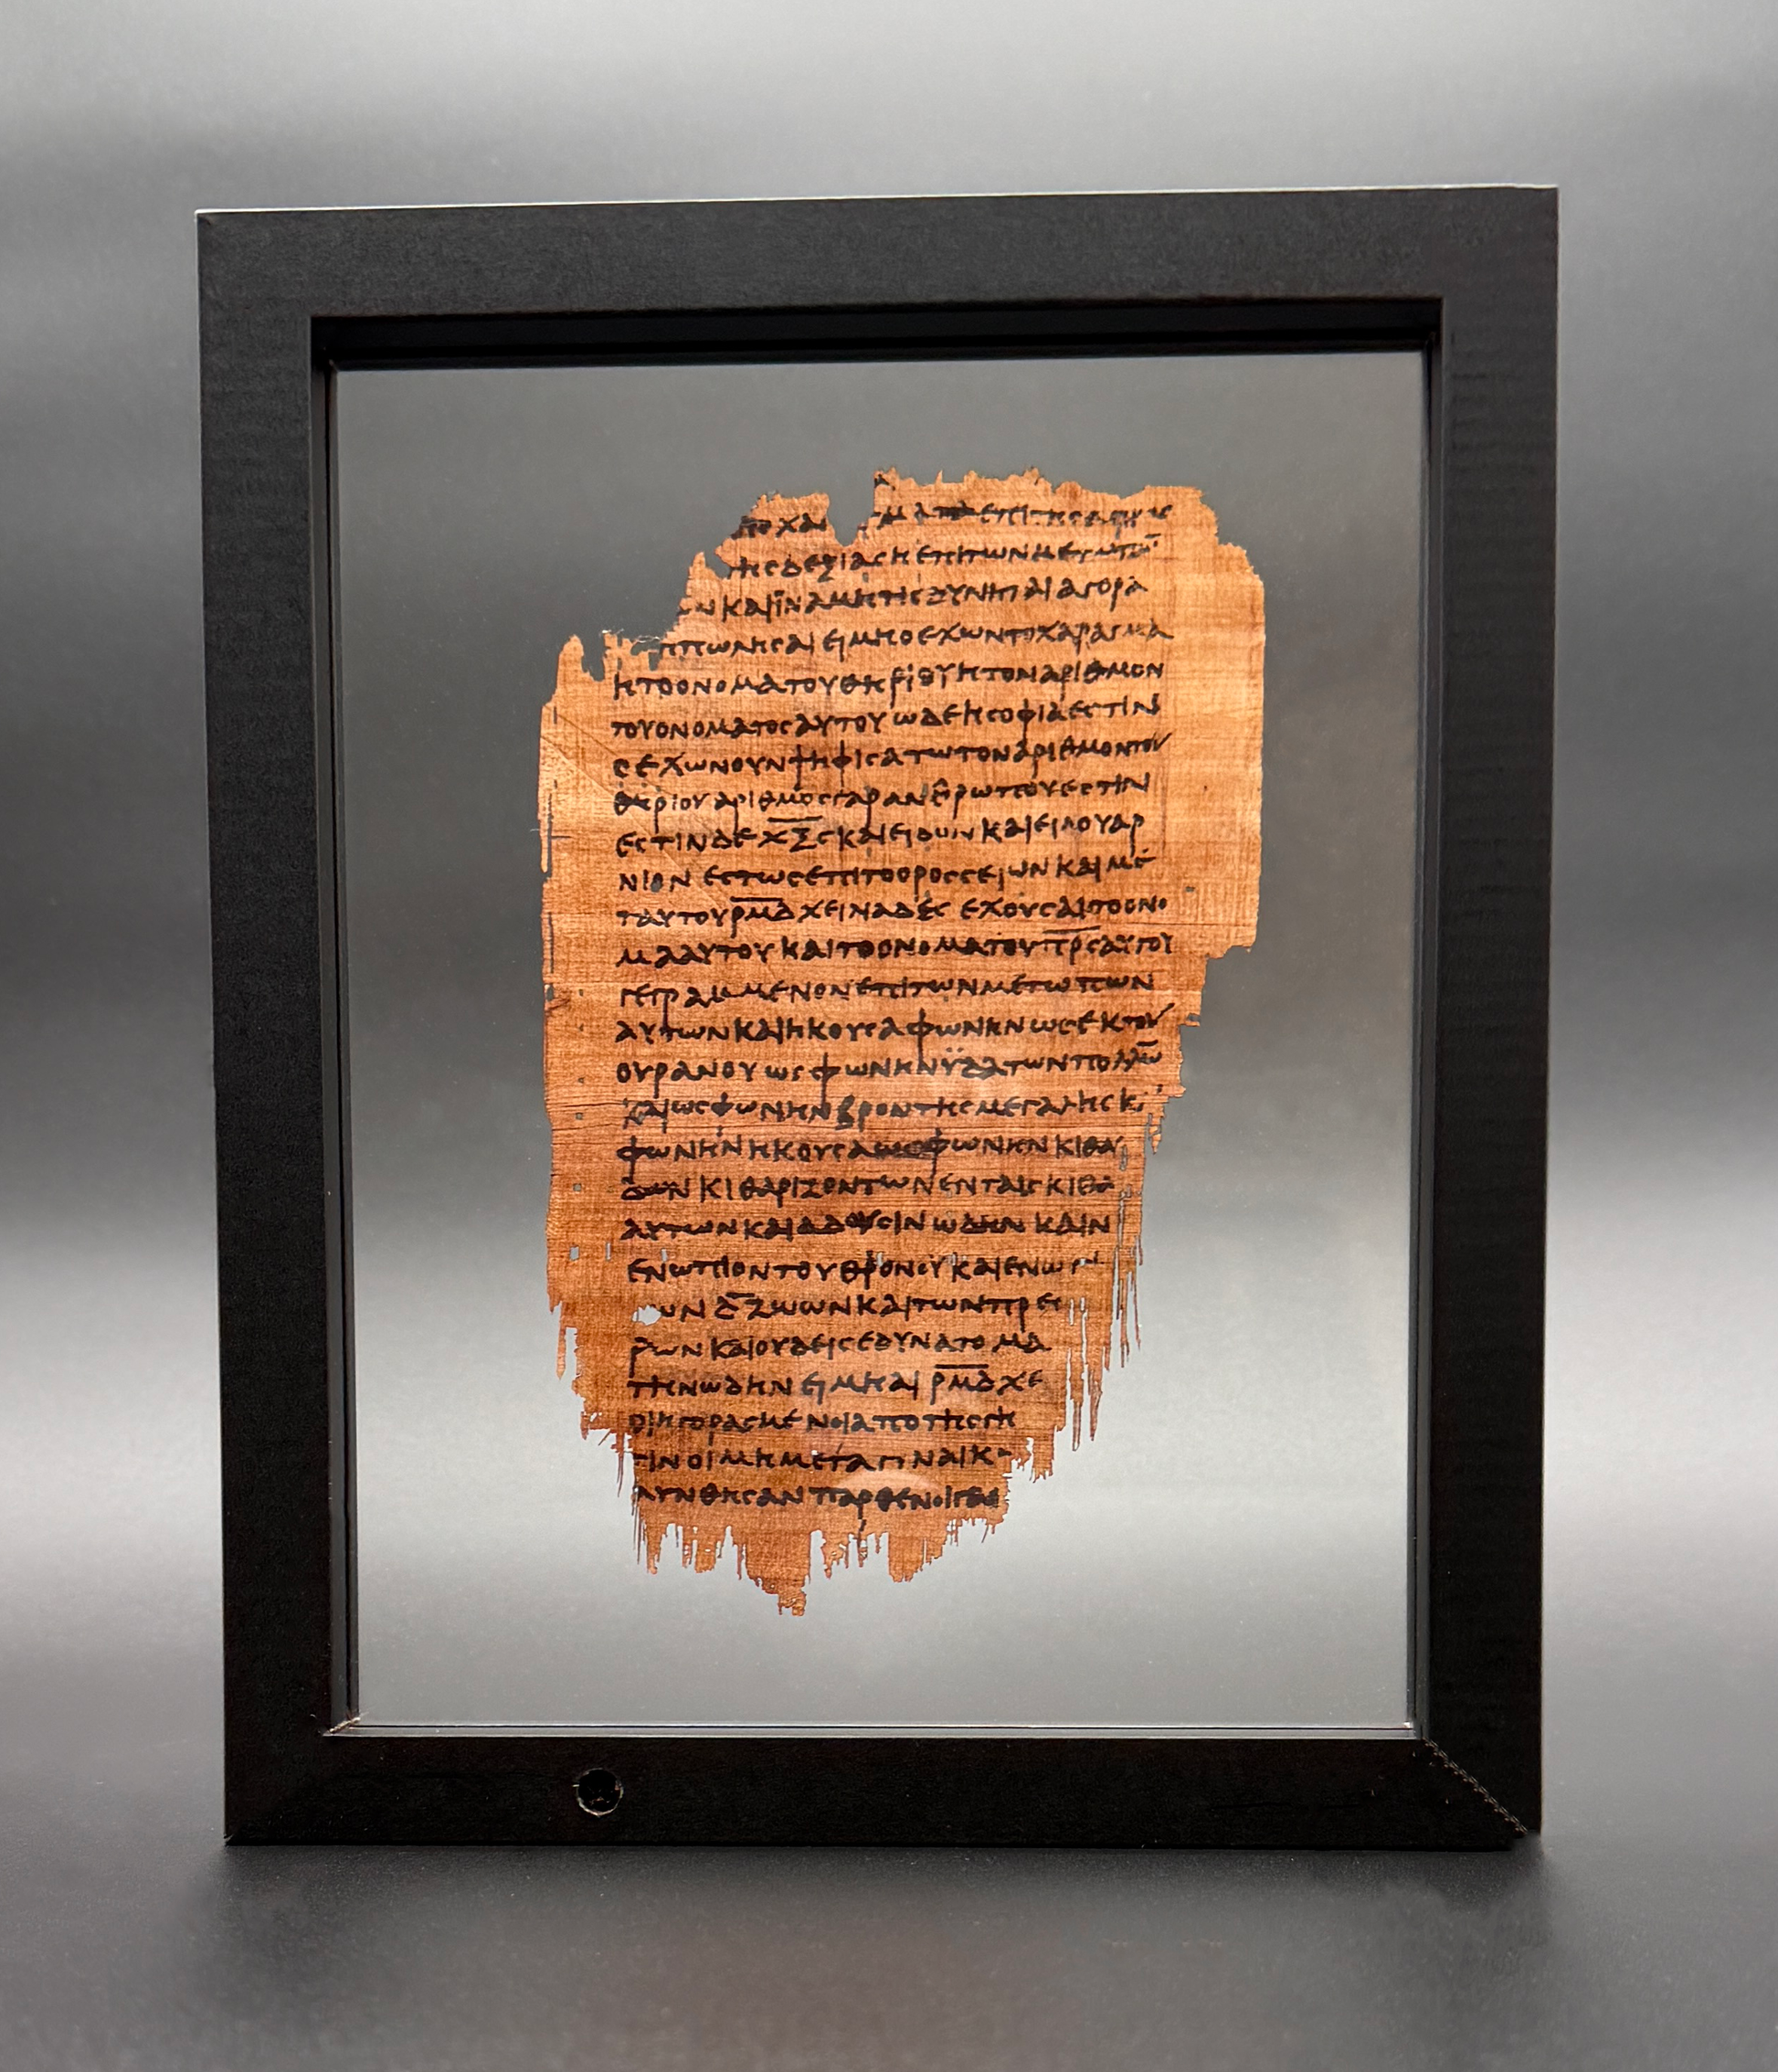 χα μα επι της
της δεξιας η επι των μετωπω̄
ν και ϊνα μη τις δυνηται αγορα
η πωλησαι ει μη ο εχων το χαραγμα
η το ονομα του θηριου η τον αριθμον
του ονοματος αυτου ωδε η σοφια εστιν
ο εχων ουν ψηφισατω τον αριθμον του
θηριου αριθμος γαρ ανθρωπου εστιν
εστιν δε χ̅ξ̅ς̅ και ειδον και ειδου αρ
νιον εστως επι το ορος σειων και με
τ αυτου ρ̅μ̅δ̅ χειλιαδες εχουσαι το ονο
μα αυτου και το ονομα του π̅ρ̅ς̅ αυτου
γεγραμμενον επι των μετωπων
αυτων και ηκουσα φωνην ως εκ του
ουρανου ως φωνην ϋδατων πολλω̄
και ως φωνην βροντης μεγαλης κ
φωνην ηκουσα ως φωνην κιθα
δων κιθαριζοντων εν ταις κιθα
αυτων και αδουσιν ωδην καιν
ενωπιον του θρονου και ενω
ων δ̅ ζωων και των πρεσ
ρων και ουδεις εδυνατο μα
την ωδην ει μη αι ρ̅μ̅δ̅ χε
οι ηγορασμενοι απο της γη
ιν οι μη μετα γυναικ
λυνθησαν παρθενοι γα